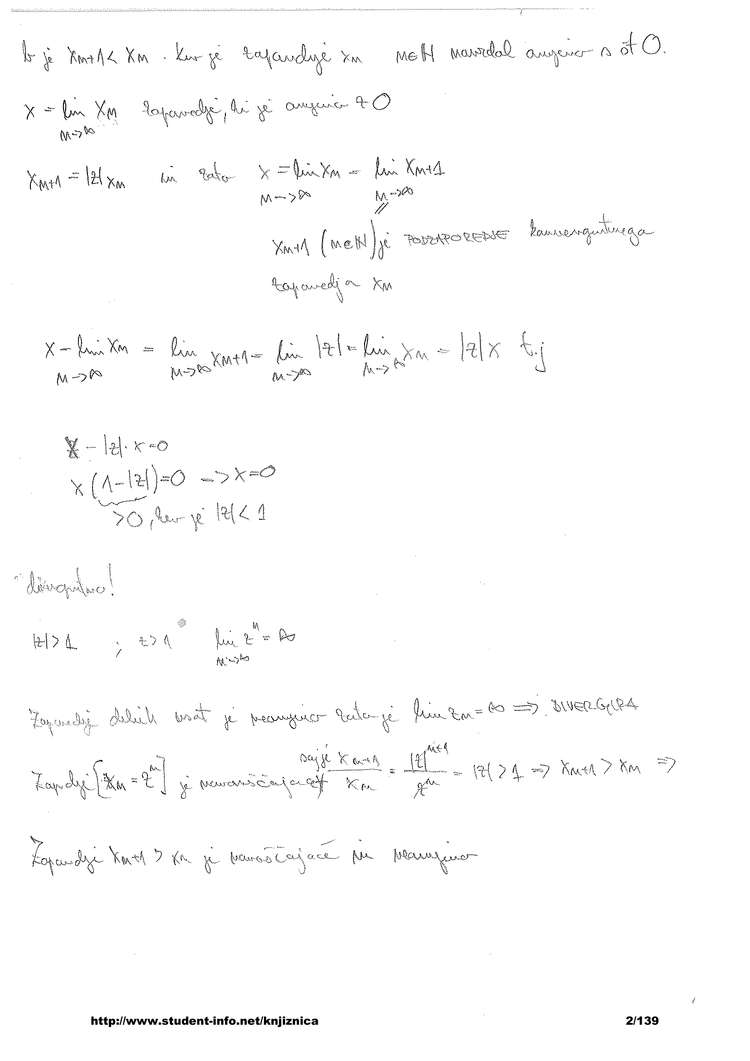 je Xₙ₊₁ < Xₙ. Ker je zaporedje xₙ n∈N navzdol omejeno s št 0.
x = lim Xₙ zaporedje, ki je omejeno z 0
n->∞
Xₙ₊₁ = |z| xₙ in zato x = lim xₙ = lim Xₙ₊₁
n->∞ n->∞
Xₙ₊₁ (n∈N) je PODZAPOREDJE konvergentnega
zaporedja xₙ
x - lim xₙ = lim xₙ₊₁ = lim |z| = lim xₙ = |z|x t.j
n->∞ n->∞ n->∞ n->∞
x - |z|·x=0
x(1-|z|)=0 -> x=0
>0, ker je |z| < 1
divergentno!
|z|>1 ; z>1 lim zⁿ = ∞
n->∞
Zaporedje delnih vsot je neomejeno zato je lim zₙ = ∞ => DIVERGIRA
Zaporedje [xₙ = zⁿ] je naraščajoče saj je xₙ₊₁/xₙ = |z|ⁿ⁺¹/zⁿ = |z| > 1 => xₙ₊₁ > xₙ =>
Zaporedje xₙ₊₁ > xₙ je naraščajoče in neomejeno
http://www.student-info.net/knjiznica 2/139